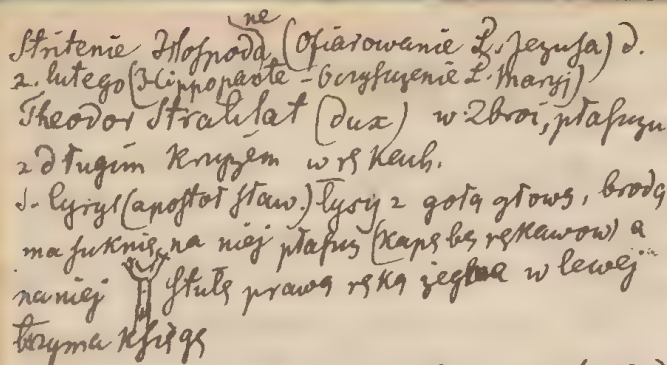 Stritenie Hospodne (Ofiarowanie P. Jezusa) d.
2. lutego (Hippopaote - Oczyszczenie P. Maryj)
Theodor Stratilat (dux) w zbroi, płaszczu
z długim krzyżem w rękach.
S. Cyryl (apostoł sław.) łysy z gołą głową, brodą
ma suknię na niej płaszcz (kapę bez rękawow) a
na niej stułę prawą ręką żegna w lewej
trzyma księgę